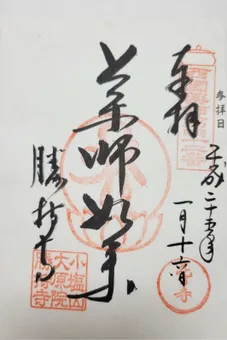 参拝日
奉拝
平成二十五年
一月十六日
薬師如来
勝持寺
小塩山
大原院
勝持寺